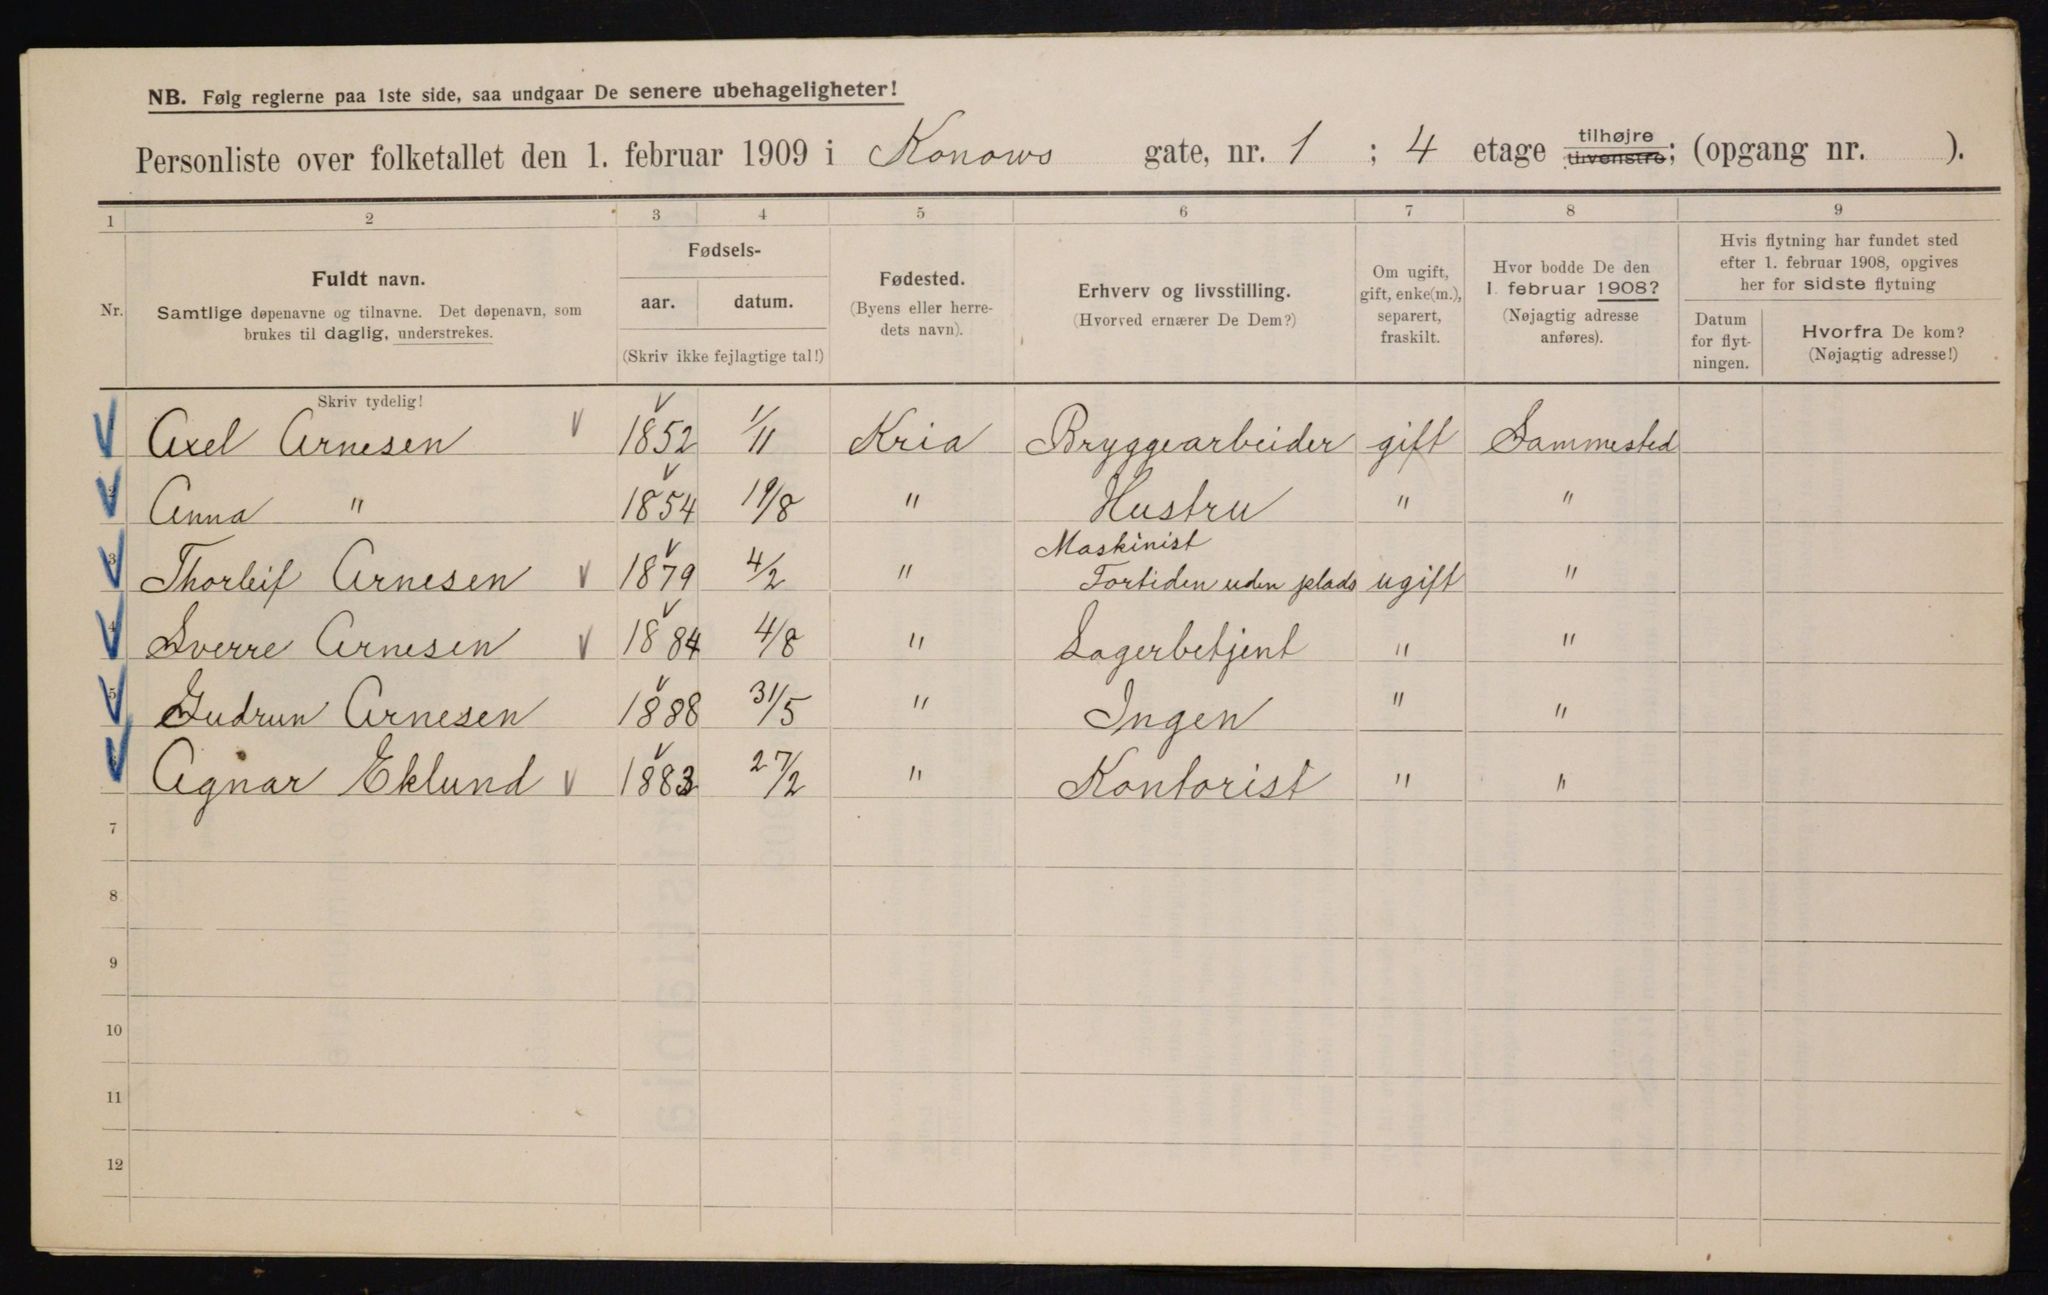 NB. Følg reglerne paa 1ste side, saa undgaar De senere ubehageligheter!
Personliste over folketallet den 1. februar 1909 i Konows gate, nr. 1 ; 4 etage tilhøjre tilvenstre; (opgang nr. ).
1 2 3 4 5 6 7 8 9
Nr.
Fuldt navn.
Samtlige døpenavne og tilnavne. Det døpenavn, som
brukes til daglig, understrekes.
Fødsels-
aar. datum.
(Skriv ikke fejlagtige tal!)
Fødested.
(Byens eller herre-
dets navn).
Erhverv og livsstilling.
(Hvorved ernærer De Dem?)
Om ugift,
gift, enke(m.),
separert,
fraskilt.
Hvor bodde De den
1. februar 1908?
(Nøjagtig adresse
anføres).
Hvis flytning har fundet sted
efter 1. februar 1908, opgives
her for sidste flytning
Datum
for flyt-
ningen.
Hvorfra De kom?
(Nøjagtig adresse!)
Skriv tydelig!
Axel Arnesen 1852 1/11 Kria Bryggearbeider gift Sammested
2 Anna " 1854 19/8 " Hustru " "
Maskinist
3 Thorleif Arnesen 1879 4/2 " Fortiden uden plads ugift "
4 Sverre Arnesen 1884 4/8 " Lagerbetjent " "
5 Gudrun Arnesen 1888 31/5 " Ingen " "
6 Agnar Eklund 1883 27/2 " Kontorist " "
7
8
9
10
11
12